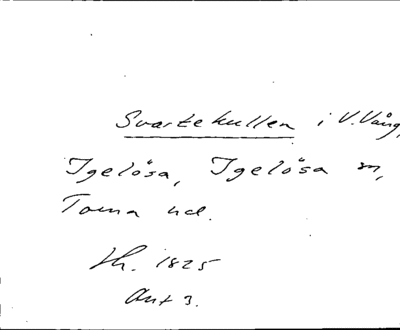 Svartekullen i V. Vång,
Igelösa, Igelösa sn,
Torna hd.
Lh. 1825
Akt 3.